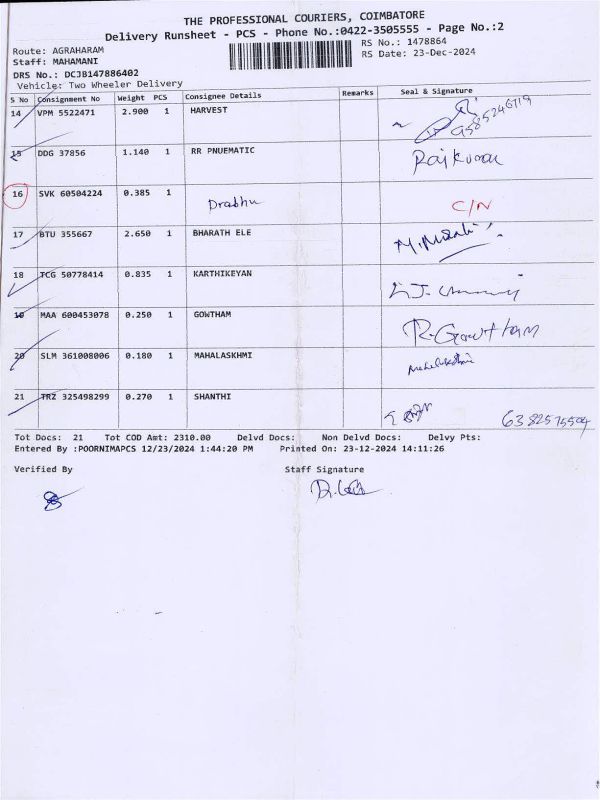 THE PROFESSIONAL COURIERS, COIMBATORE
Delivery Runsheet - PCS - Phone No.:0422-3505555 - Page No.:2
Route: AGRAHARAM
RS No.: 1478864
Staff: MAHAMANI
RS Date: 23-Dec-2024
DRS No.: DCJB147886402
Vehicle: Two Wheeler Delivery
S No Consignment No Weight PCS Consignee Details Remarks Seal & Signature
14 VPM 5522471 2.900 1 HARVEST
15 DDG 37856 1.140 1 RR PNUEMATIC Rajkumar
16 SVK 60504224 0.385 1 Prabhu C/N
17 BTU 355667 2.650 1 BHARATH ELE
18 TCG 50778414 0.835 1 KARTHIKEYAN
19 MAA 600453078 0.250 1 GOWTHAM R.Gowtham
20 SLM 361008006 0.180 1 MAHALASKHMI
21 TRZ 325498299 0.270 1 SHANTHI
Tot Docs: 21 Tot COD Amt: 2310.00 Delvd Docs: Non Delvd Docs: Delvy Pts:
Entered By :POORNIMAPCS 12/23/2024 1:44:20 PM Printed On: 23-12-2024 14:11:26
Verified By Staff Signature